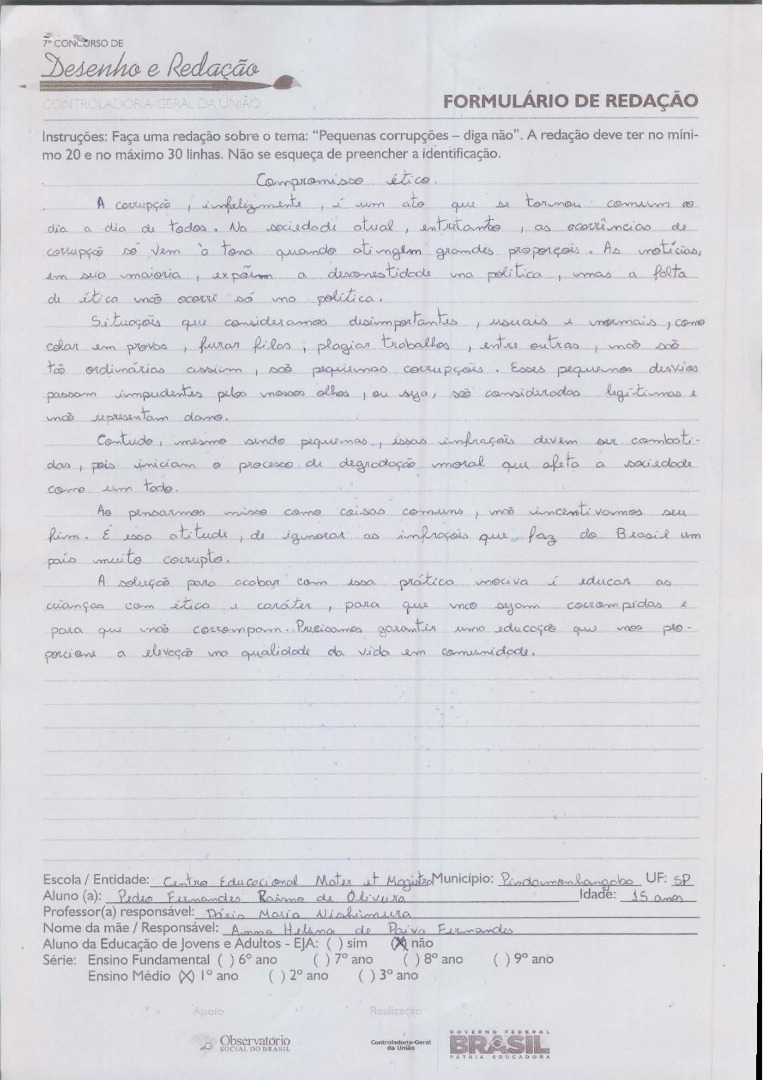 7º CONCURSO DE
Desenho e Redação
CONTROLADORIA-GERAL DA UNIÃO
FORMULÁRIO DE REDAÇÃO
Instruções: Faça uma redação sobre o tema: "Pequenas corrupções – diga não". A redação deve ter no míni-
mo 20 e no máximo 30 linhas. Não se esqueça de preencher a identificação.
Compromisso ético.
A corrupção, infelizmente, é um ato que se tornou comum ao
dia a dia de todos. Na sociedade atual, entretanto, as ocorrências de
corrupção só vem à tona quando atingem grandes proporções. As notícias,
em sua maioria, expõem a desonestidade na política, mas a falta
de ética não ocorre só na política.
Situações que consideramos desimportantes, usuais e normais, como
colar em provas, furar filas, plagiar trabalhos, entre outras, não são
tão ordinárias assim, são pequenas corrupções. Esses pequenos desvios
passam impudentes pelos nossos olhos, ou seja, são considerados legítimas e
não representam dano.
Contudo, mesmo sendo pequenas, essas infrações devem ser combati-
das, pois iniciam o processo de degradação moral que afeta a sociedade
como um todo.
Ao pensarmos nisso como coisas comuns, nós incentivamos seu
fim. É essa atitude, de ignorar as infrações que faz do Brasil um
país muito corrupto.
A solução para acabar com essa prática nociva é educar as
crianças com ética e caráter, para que não sejam corrompidas e
para que não corrompam. Precisamos garantir uma educação que nos pro-
porcione a elevação na qualidade da vida em comunidade.
Escola / Entidade: Centro Educacional Mater et Magistra Município: Pindamonhangaba UF: SP
Aluno (a): Pedro Fernandes Raimo de Oliveira Idade: 15 anos
Professor(a) responsável: Dária Maria Nishimura
Nome da mãe / Responsável: Anna Helena de Paiva Fernandes
Aluno da Educação de Jovens e Adultos - EJA: ( ) sim (X) não
Série: Ensino Fundamental ( ) 6º ano ( ) 7º ano ( ) 8º ano ( ) 9º ano
Ensino Médio (X) 1º ano ( ) 2º ano ( ) 3º ano
Apoio Realização
Observatório
SOCIAL DO BRASIL
Controladoria-Geral
da União
GOVERNO FEDERAL
BRASIL
PÁTRIA EDUCADORA